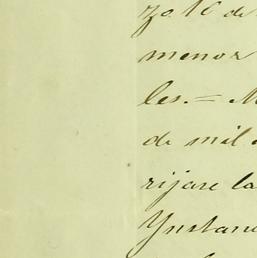 zo 16 de
menor
les. = M
de mil
rijase la
Ynstan